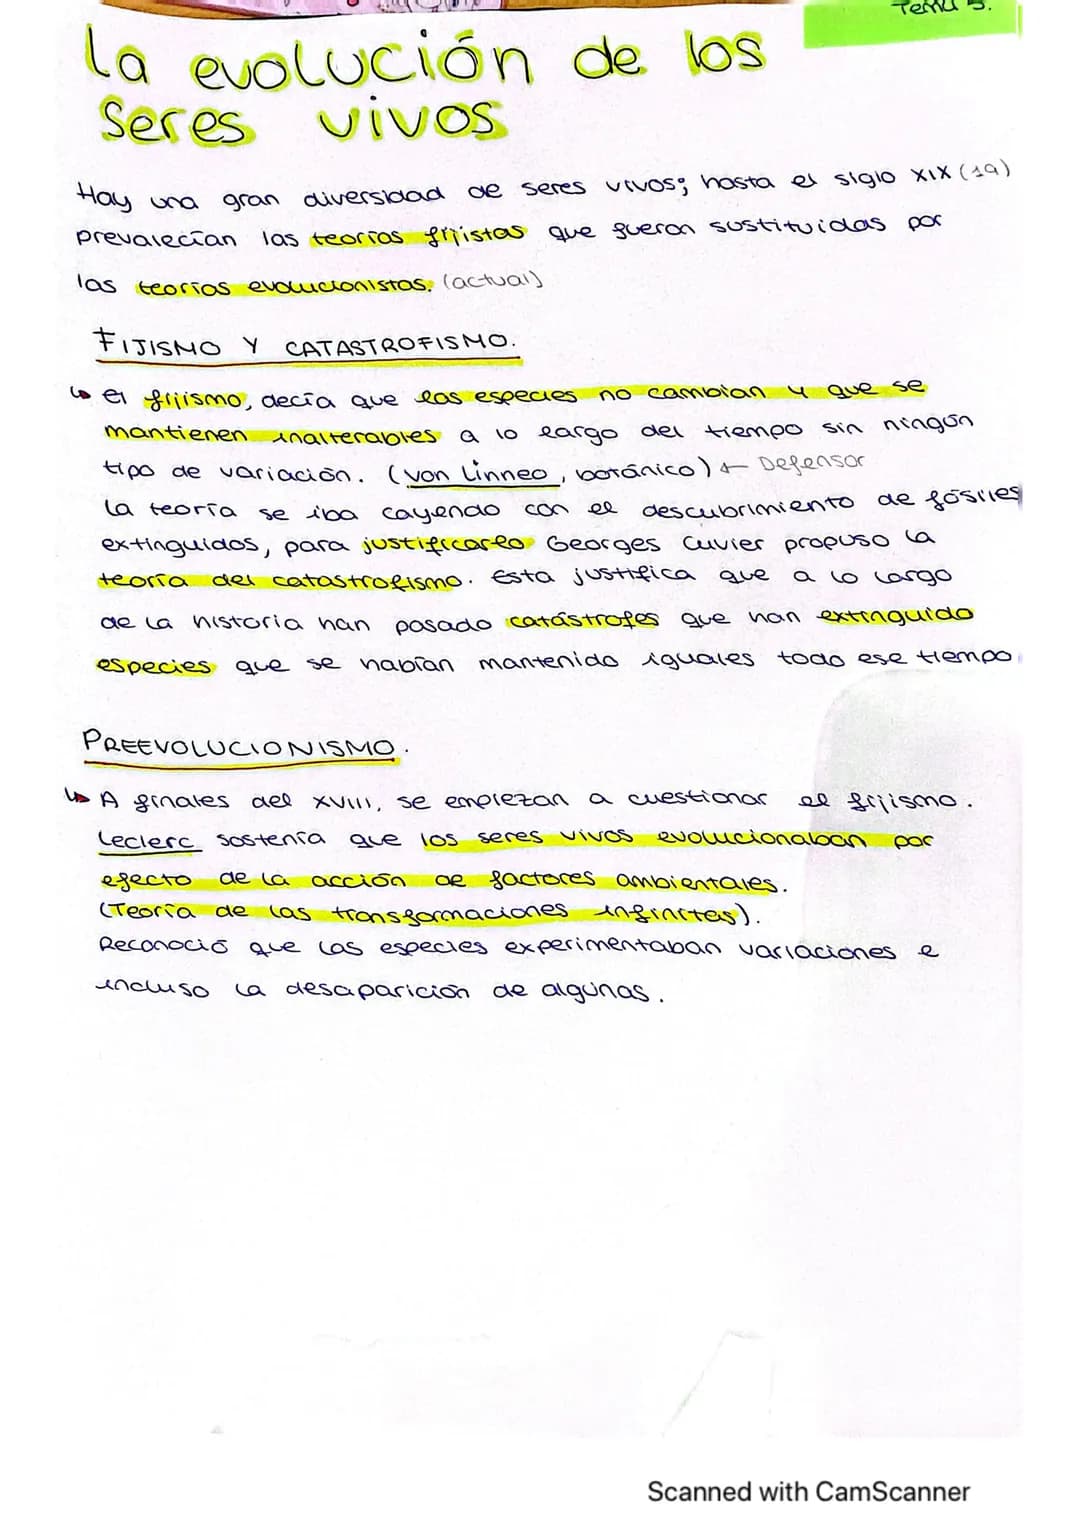 Tema 5.
La evolución de los
Seres vivos
Hay una gran diversidad de seres vivos; hasta el siglo XIX (19)
prevalecían las teorías fijistas que fueron sustituidas por
las teorías evolucionistas. (actual)
FIJISMO Y CATASTROFISMO.
↳ el fijismo, decía que las especies no cambian y que se
mantienen inalterables a lo largo del tiempo sin ningún
tipo de variación. (von Linneo, botánico) ← Defensor
La teoría se iba cayendo con el descubrimiento de fósiles
extinguidos, para justificarlo Georges Cuvier propuso la
teoría del catastrofismo. Esta justifica que a lo largo
de la historia han pasado catástrofes que han extinguido
especies que se habían mantenido iguales todo ese tiempo
PREEVOLUCIONISMO.
↳ A finales del XVIII, se empiezan a cuestionar el fijismo.
Leclerc sostenía que los seres vivos evolucionaban por
efecto de la acción de factores ambientales.
(Teoría de las transformaciones infinitas).
Reconoció que las especies experimentaban variaciones e
incluso la desaparición de algunas.
Scanned with CamScanner